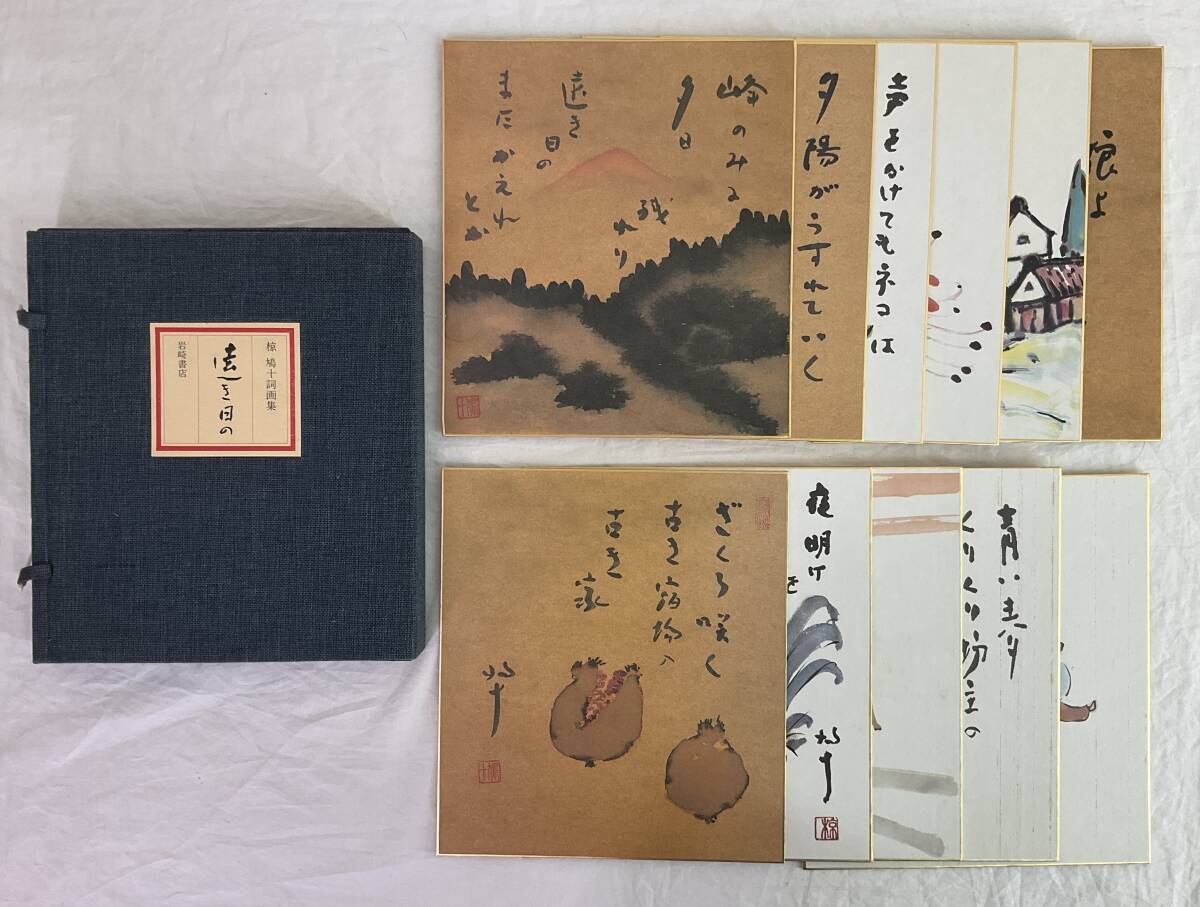 椋 鳩十詞画集
遠き日の
岩崎書店
峰のみに
夕日
残れり
遠き
日の
まだかえれ
とか
夕陽がうすれていく
声をかけてもネコは
狼よ
ざくろ咲く
古き宿場の
古き家
鳩十
夜明け
を
鳩十
椋
青い麦
くりくり坊主の